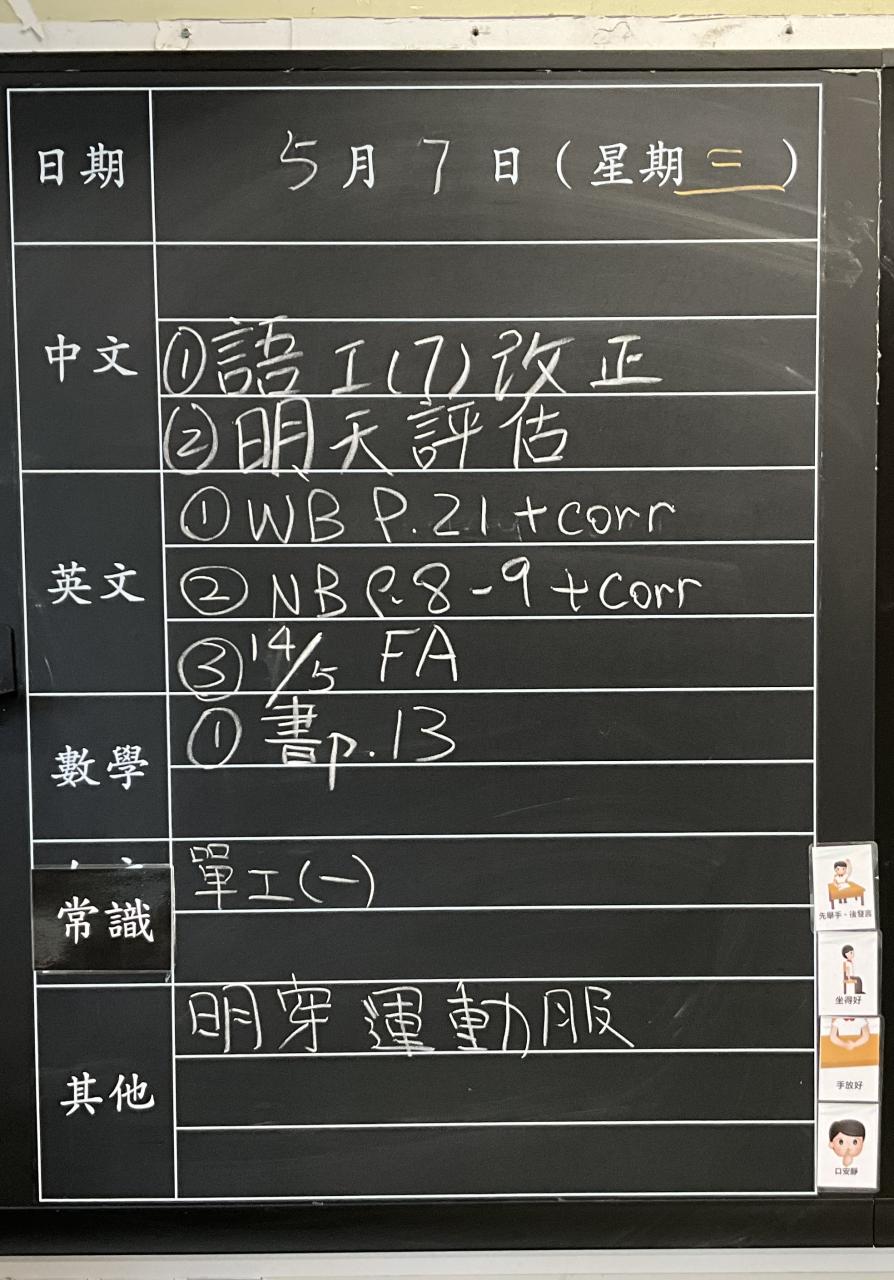 日期 5月7日(星期二)
中文
①語工(7)改正
②明天評估
英文
①WB P.21+corr
②NB P.8-9+corr
③14/5 FA
數學
①書p.13
常識
單工(一)
其他
明穿運動服
先舉手,後發言
坐得好
手放好
口安靜